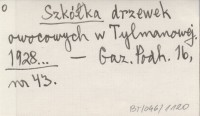 Szkółka drzewek
owocowych w Tylmanowej.
1928... — Gaz. Podh. 16,
nr 43.
BT/046/1120